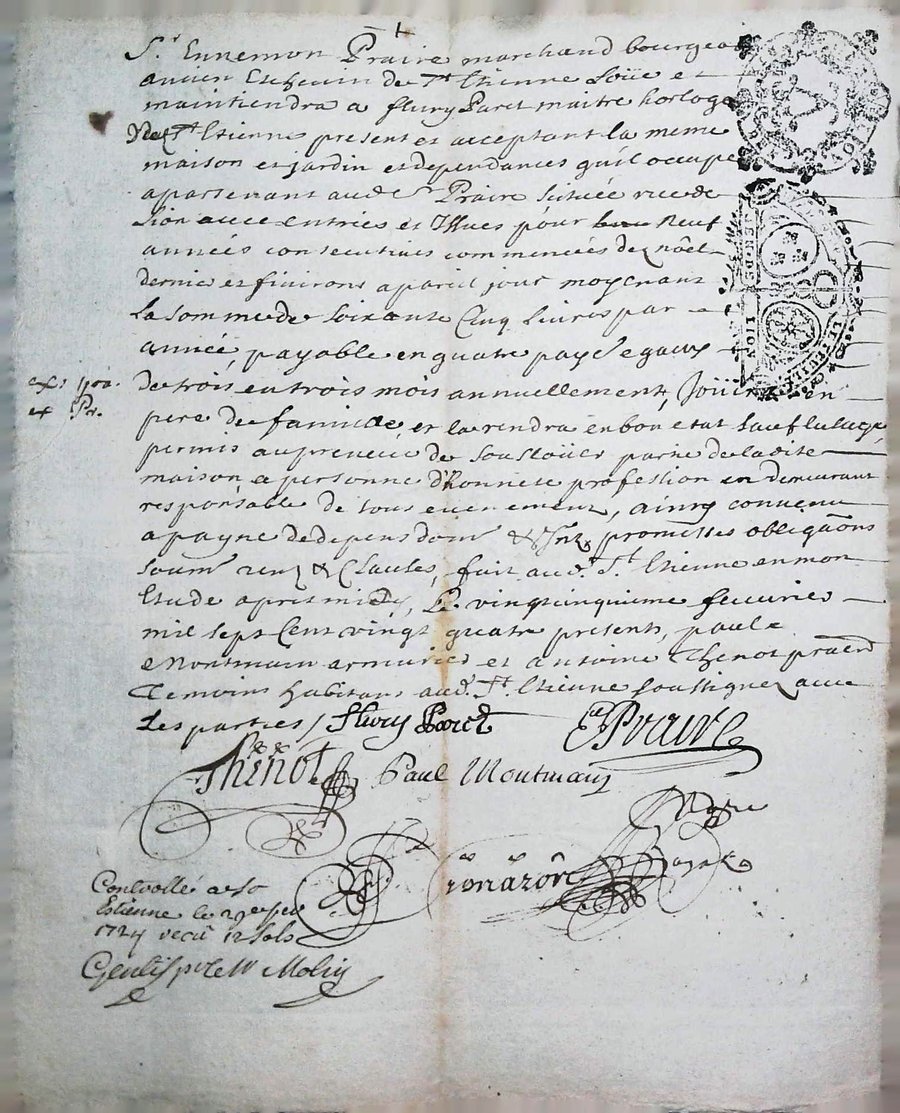 Sr Ennemon Praire marchand bourgeois
ancien Eschevin de St Etienne Loüe et
maintiendra a fleury Paret maitre horloge
de St Etienne present et acceptant la meme
maison et jardin et dependances quil occupe
apartenant aud Sr Praire scituée rue de
Lion avec entrées et Issues pour neuf
années consecutives commencées de noël
dernier et finirons a pareil jour moyenant
la somme de soixante Cinq livres par
année, payable en quatre paye egaux
de trois en trois mois annuellement, Joüir en
pere de famille, et la rendra en bon etat sauf lusage
permis au preneur de sousloüer partie de ladite
maison a personne d'honnete profession en demeurant
responsable de tous evenement, ainsy convenu
a payne de depens dom & Int promettes obligaons
soum ren & Clauses, fait aud. St Etienne en mon
Etude apres midy, Le vingtcinquieme fevrier
mil sept Cent vingt quatre presents, paul
Montmain armurier et antoine Thenot praen
Temoins habitans aud. St Etienne soussignez avec
Les parties / fleury Paret
E Praire
Thenot
Paul Montmain
Controllé a St
Estienne le 29e fev
1724 recu 12 sols